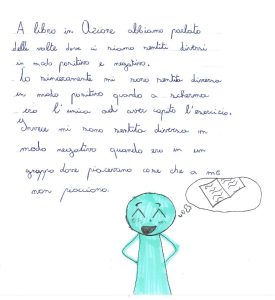 A libro in Azione abbiamo parlato
delle volte dove ci siamo sentiti diversi
in modo positivo e negativo.
Io sinceramente mi sono sentita diversa
in modo positivo quando a scherma
ero l'unica ad aver capito l'esercizio.
Invece mi sono sentita diversa in
modo negativo quando ero in un
gruppo dove piacevano cose che a me
non piacciono.